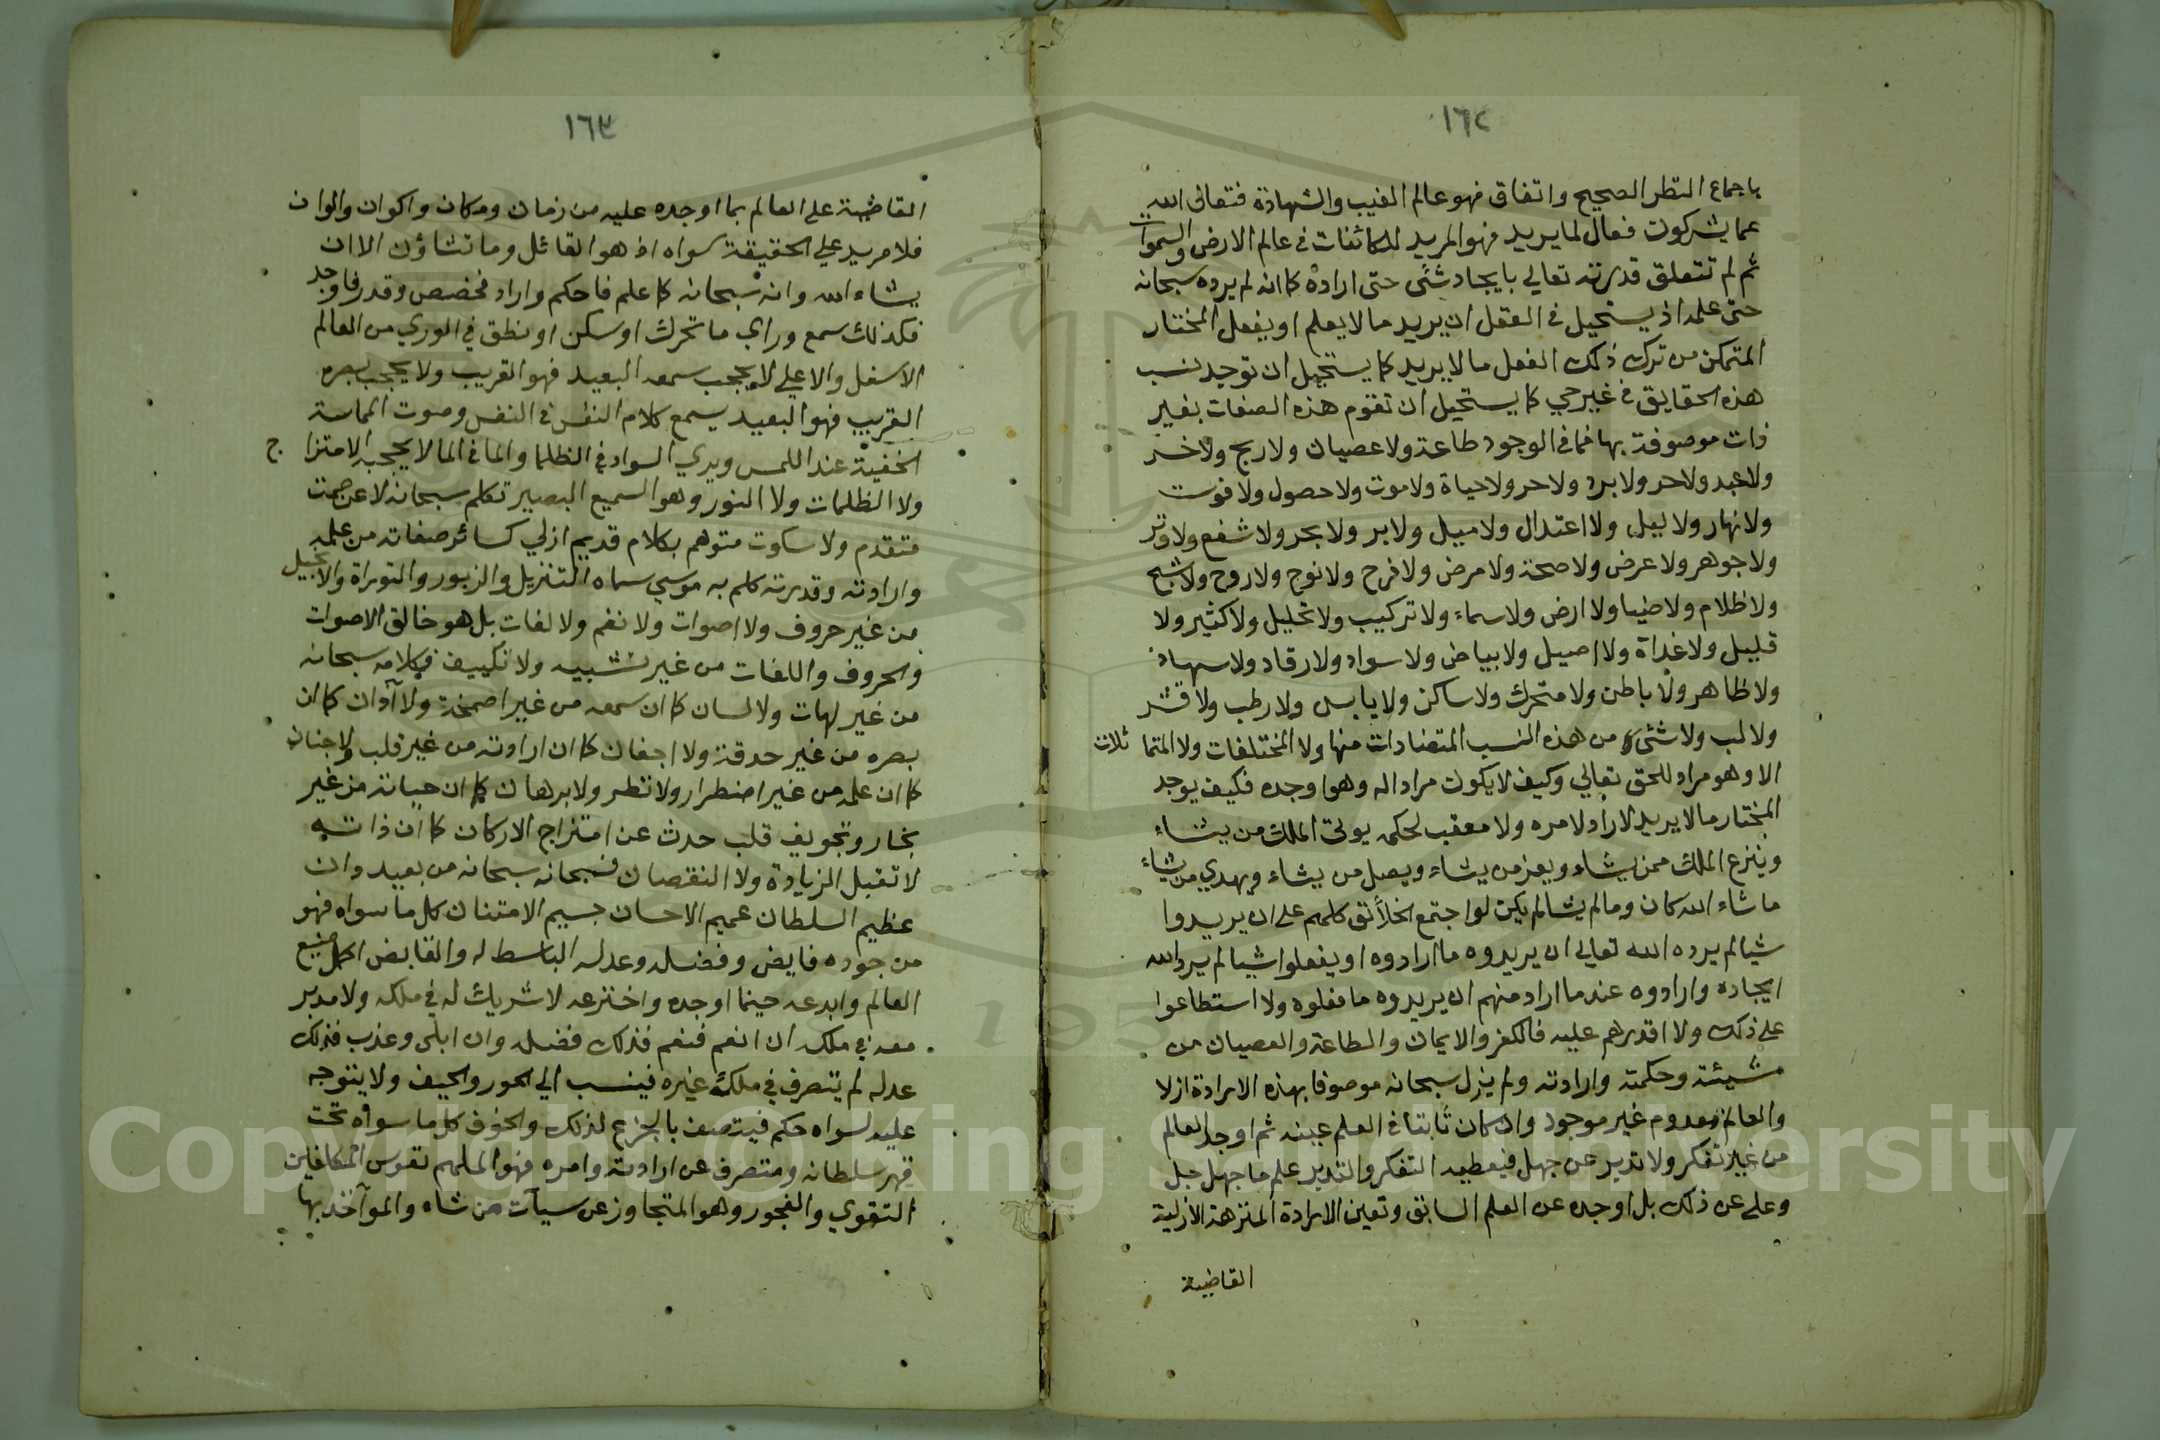 ١٦٢
باجماع النظر الصحيح واتفاق فهو عالم الغيب والشهادة فتعالى الله
عما يشركون فعال لما يريد فهو المريد للكائنات في عالم الارض والسموات
ثم لم تتعلق قدرته تعالي بايجاد شئ حتى اراده كما انه لم يرده سبحانه
حتى علمه اذ يستحيل في العقل ان يريد ما لا يعلم او يفعل المختار
المتمكن من ترك ذلك الفعل ما لا يريد كما يستحيل ان توجد نسب
هذه الحقايق في غير حي كما يستحيل ان تقوم هذه الصفات بغير
ذات موصوفة بها فما في الوجود طاعة ولا عصيان ولا ربح ولا خسر
ولا عبد ولا حر ولا برد ولا حر ولا حياة ولا موت ولا حصول ولا فوت
ولا نهار ولا ليل ولا اعتدال ولا ميل ولا بر ولا بحر ولا شفع ولا وتر
ولا جوهر ولا عرض ولا صحة ولا مرض ولا فرح ولا نوح ولا روح ولا شبح
ولا ظلام ولا ضيا ولا ارض ولا سماء ولا تركيب ولا تحليل ولا كثير ولا
قليل ولا غداة ولا اصيل ولا بياض ولا سواد ولا رقاد ولا سهاد
ولا ظاهر ولا باطن ولا متحرك ولا ساكن ولا يابس ولا رطب ولا قشر
ولا لب ولا شئ من هذه النسب المتضادات منها ولا المختلفات ولا المتما ثلات
الا وهو مراد للحق تعالي وكيف لا يكون مرادا له وهو اوجده فكيف يوجد
المختار ما لا يريد لا راد لامره ولا معقب لحكمه يوتى الملك من يشاء
وينزع الملك ممن يشاء ويعز من يشاء ويضل من يشاء ويهدي من يشاء
ما شاء الله كان وما لم يشا لم يكن لو اجتمع الخلائق كلهم على ان يريدوا
شيا لم يرده الله تعالى ان يريدوه ما ارادوه او يفعلوا شيا لم يرد الله
ايجاده وارادوه عندما اراد منهم ان يريدوه ما فعلوه ولا استطاعوا
على ذلك ولا اقدرهم عليه فالكفر والايمان والطاعة والعصيان من
مشيئته وحكمته وارادته ولم يزل سبحانه موصوفا بهذه الارادة ازلا
والعالم معدوم غير موجود وان كان ثابتا في العلم عينه ثم اوجد العالم
من غير تفكر ولا تدبر عن جهل فيعطيه التفكر والتدبر علم ما جهل جل
وعلى عن ذلك بل اوجده عن العلم السابق وتعين الارادة المنزهة الازلية
القاضية
١٦٣
القاضية على العالم بما اوجده عليه من زمان ومكان واكوان والوان
فلا مريد على الحقيقة سواه اذ هو القائل وما تشاؤن الا ان
يشاء الله وانه سبحانه كما علم فاحكم واراد فخصص وقدر فاوجد
فكذلك سمع وراي ما تحرك او سكن او نطق في الوري من العالم
الاسفل والاعلي لا يحجب سمعه البعيد فهو القريب ولا يحجب بصره
القريب فهو البعيد يسمع كلام النفس في النفس وصوت المماسة
الخفية عند اللمس ويري السواد في الظلما والما في الما لا يحجبه الامتزا ج
ولا الظلمات ولا النور وهو السميع البصير تكلم سبحانه لا عن صمت
متقدم ولا سكوت متوهم بكلام قديم ازلي كسائر صفاته من علمه
وارادته وقدرته كلم به موسي سماه التنزيل والزبور والتوراة والانجيل
من غير حروف ولا اصوات ولا نغم ولا لغات بل هو خالق الاصوات
والحروف واللغات من غير تشبيه ولا تكييف فكلامه سبحانه
من غير لهات ولا لسان كما ان سمعه من غير اصمخة ولا آذان كما ان
بصره من غير حدقة ولا اجفان كما ان ارادته من غير قلب ولا جنان
كما ان علمه من غير اضطرار ولا نظر ولا برهان كما ان حياته من غير
بخار وتجويف قلب حدث عن امتزاج الاركان كما ان ذاته
لا تقبل الزيادة ولا النقصان فسبحانه سبحانه من بعيد دان
عظيم السلطان عميم الاحسان جسيم الامتنان كل ما سواه فهو
من جوده فايض وفضله وعدله الباسط له والقابض اكمل صنيع
العالم وابدعه حينما اوجده واخترعه لا شريك له في ملكه ولا مدبر
معه في ملكه ان انعم فنعم فذلك فضله وان ابلى وعذب فذلك
عدله لم يتصرف في ملكه غيره فينسب الي الجور والحيف ولا يتوجه
عليه لسواه حكم فيتصف بالجزع لذلك والخوف كل ما سواه تحت
قهر سلطانه ومتصرف عن ارادته وامره فهو الملهم نفوس المكلفين
التقوي والفجور وهو المتجاوز عن سيآت من شاء والمؤآخذ بها
Copyright © King Saud University